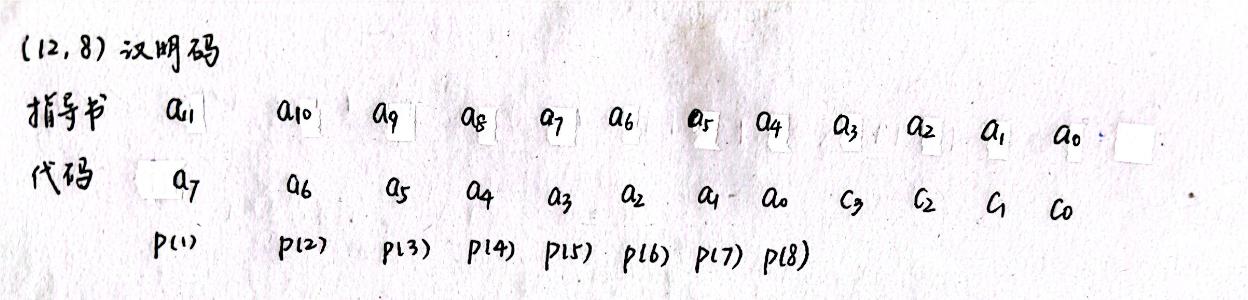 (12,8) 汉明码
指导书 a11 a10 a9 a8 a7 a6 a5 a4 a3 a2 a1 a0
代码 a7 a6 a5 a4 a3 a2 a1 a0 c3 c2 c1 c0
p(1) p(2) p(3) p(4) p(5) p(6) p(7) p(8)